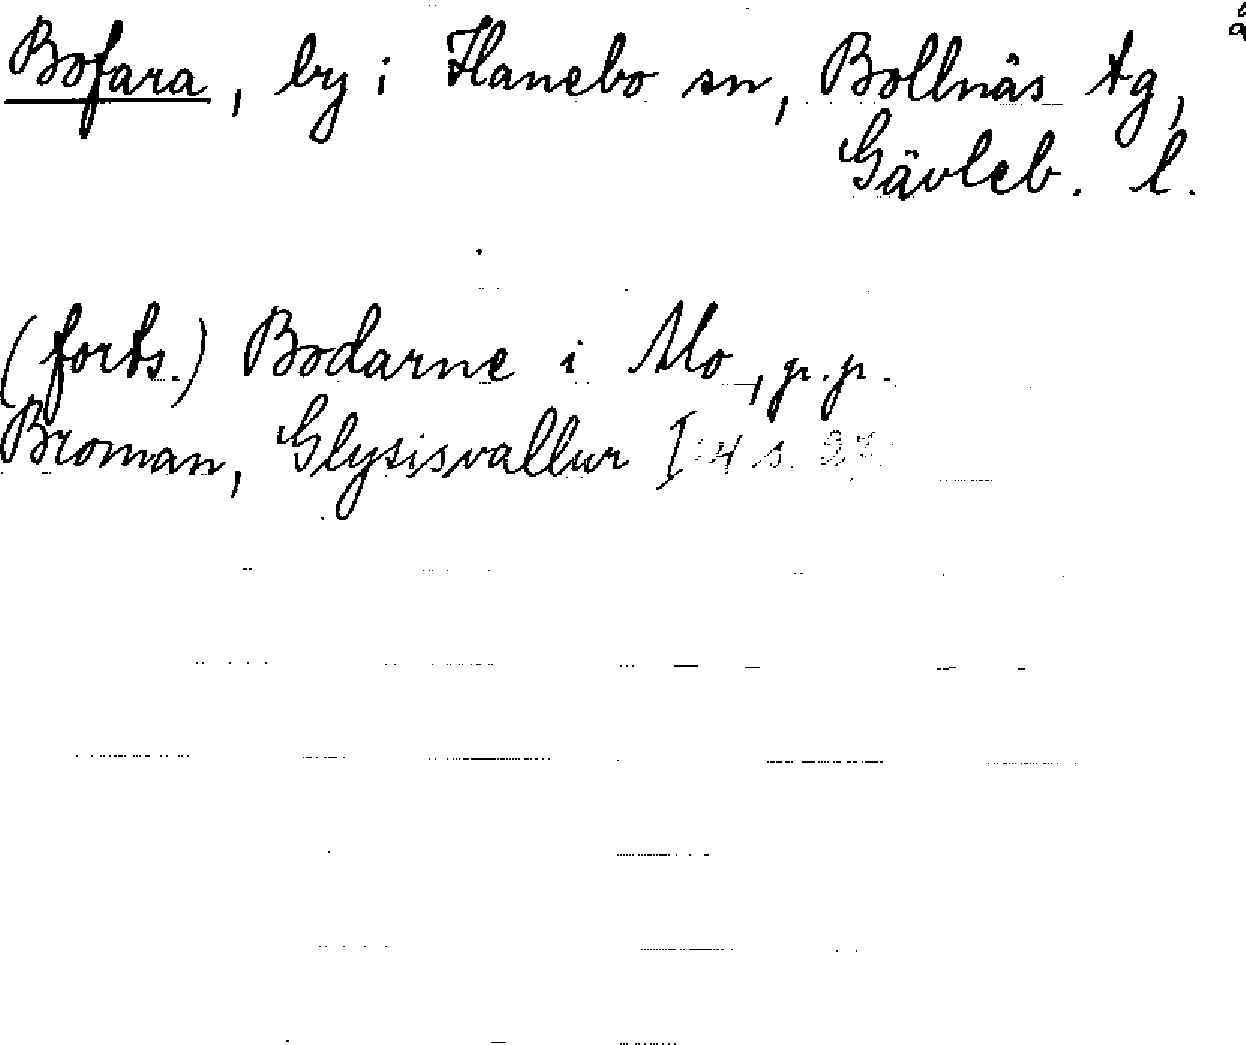 Bofara, by i Hanebo sn, Bollnäs tg,
Gävleb. l.
(forts.) Bodarne i Mo, p.p.
Broman, Glysisvallur I:4 s.